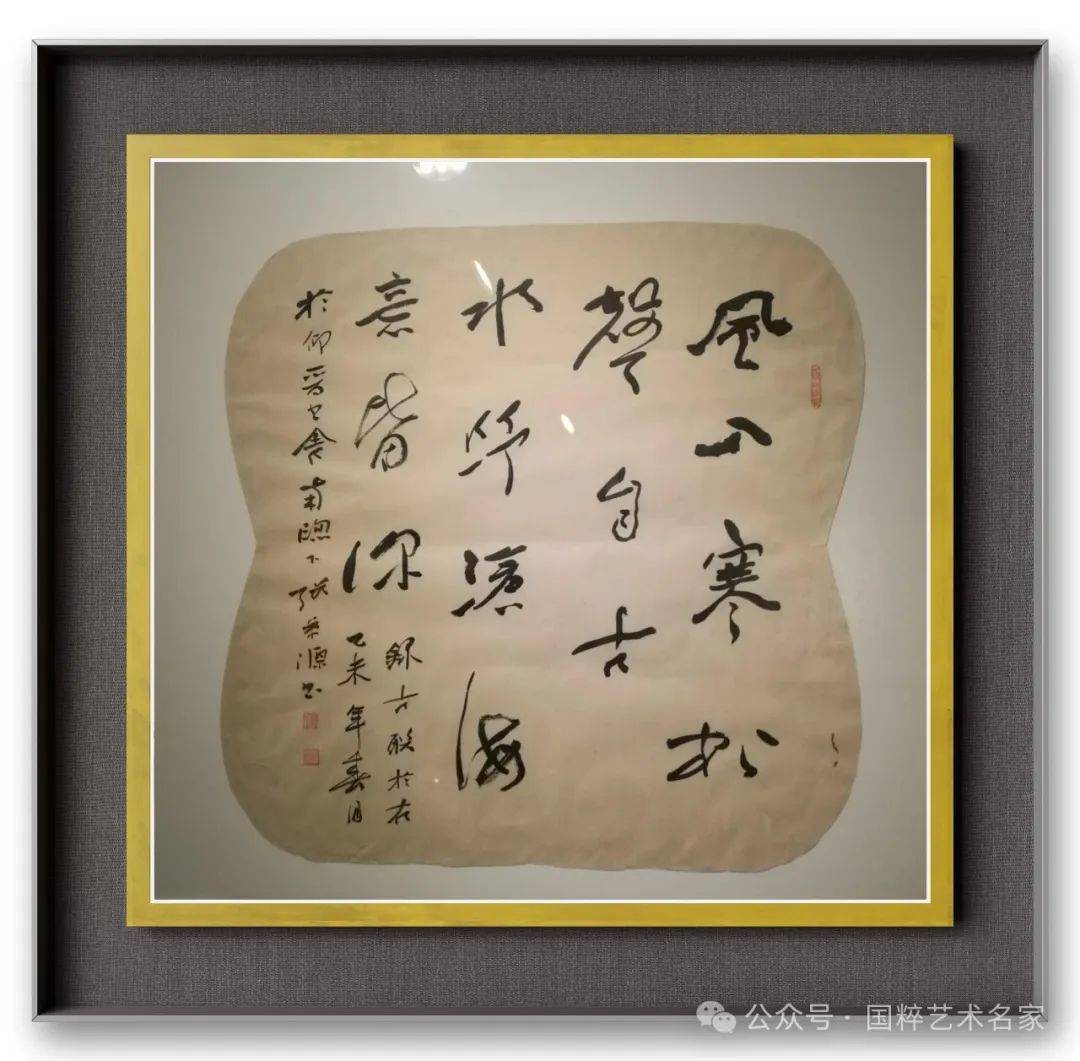 風入寒松
聲自古
水歸滄海
意皆深
錄古联於右
乙未年春月
於仰晋书舍南牕下 张 源书
公众号 · 国粹艺术名家